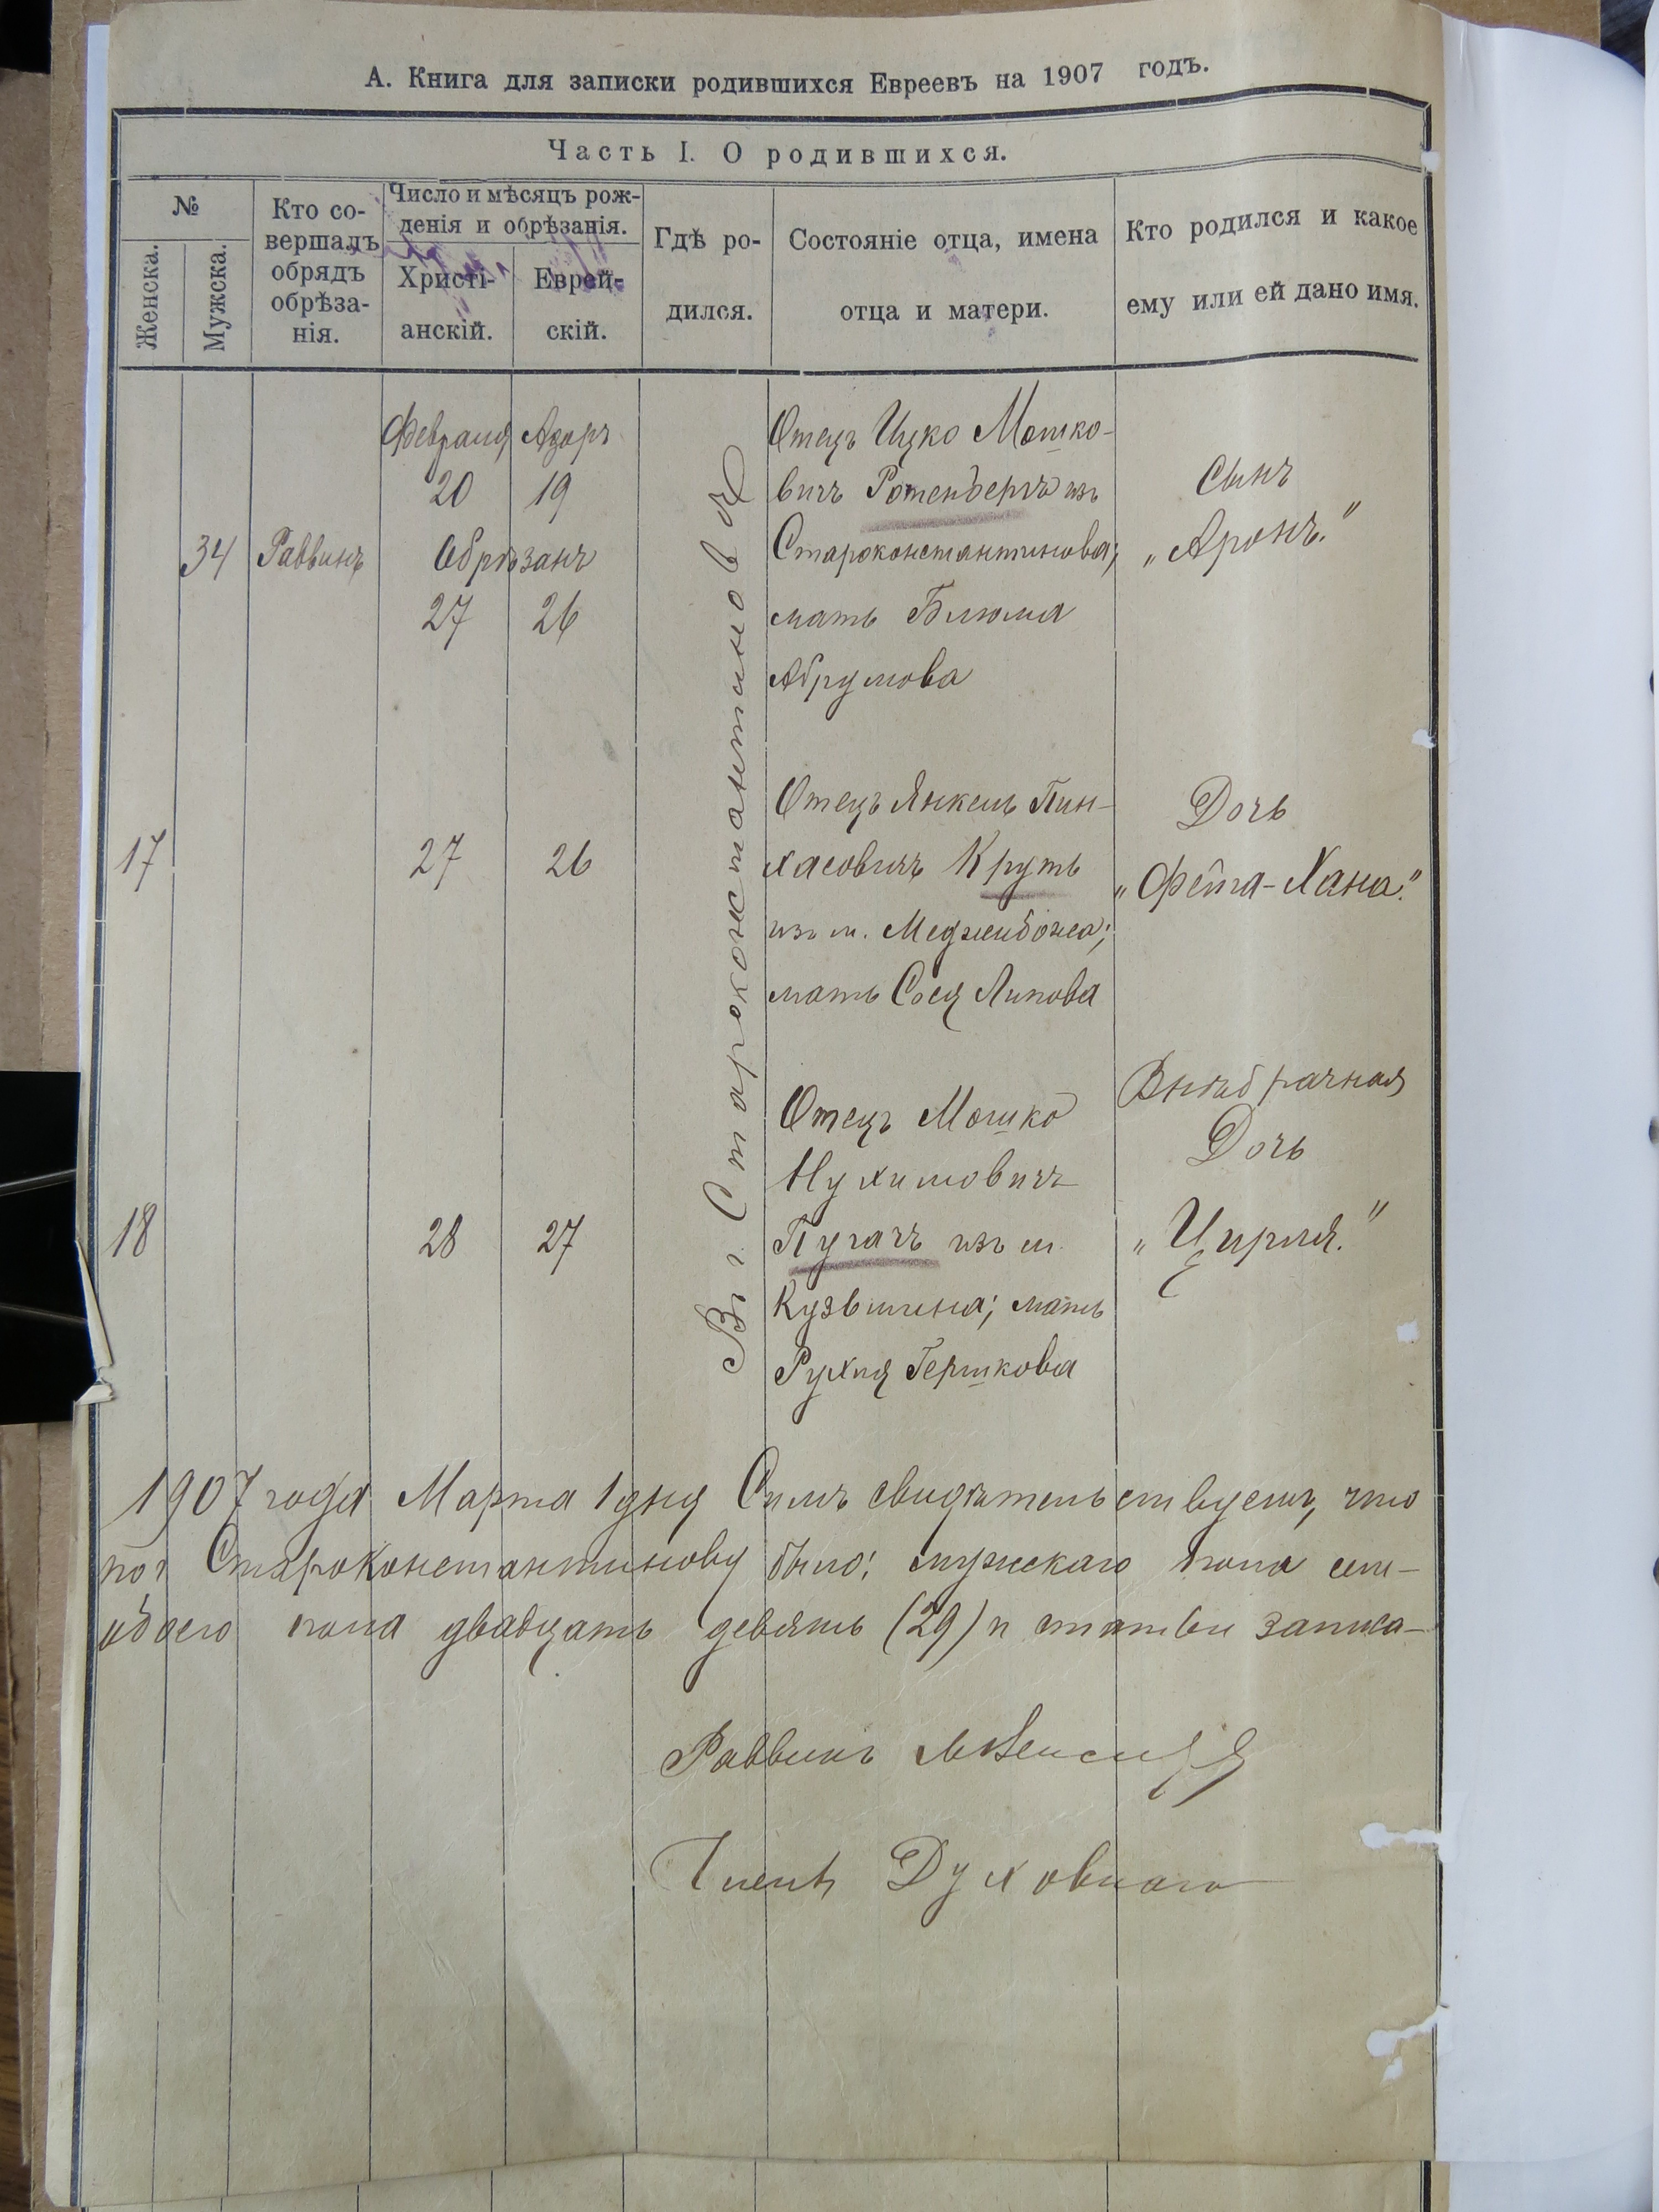 А. Книга для записки родившихся Евреевъ на 1907 годъ.
Часть I. О родившихся.
№
Женска.
Мужска.
Кто со-
вершалъ
обрядъ
обрѣза-
нія.
Число и мѣсяцъ рож-
денія и обрѣзанія.
Христі-
анскій.
Еврей-
скій.
Гдѣ ро-
дился.
Состояніе отца, имена
отца и матери.
Кто родился и какое
ему или ей дано имя.
Въ г. Староконстантиновѣ
34 Раввинъ
Февраля Адаръ
20 19
Обрѣзанъ
27 26
Отецъ Ицко Мошко-
вичъ Ротенбергъ изъ
Староконстантинова;
мать Блюма
Абрумова
Сынъ
„Аронъ."
17 27 26
Отецъ Янкель Пин-
хасовичъ Круть
изъ м. Меджибожа;
мать Сося Липова
Дочь
„Фейга-Хана."
18 28 27
Отецъ Мошко
Нухимовичъ
Пугачъ изъ м.
Кузьмина; мать
Рухля Гершкова
Внѣбрачная
Дочь
„Цирля."
1907 года Марта 1 дня Симъ свидѣтельствуемъ, что
по г Староконстантинову было: мужскаго пола сем-
обоего пола двадцать девять (29) и статьи записа-
Раввинъ
Членъ Духовнаго